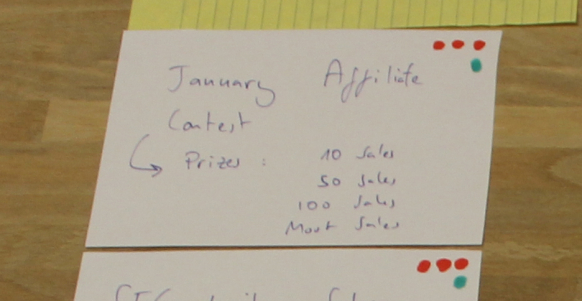 January Affiliate
Contest
Prizes : 10 Sales
50 Sales
100 Sales
Most Sales